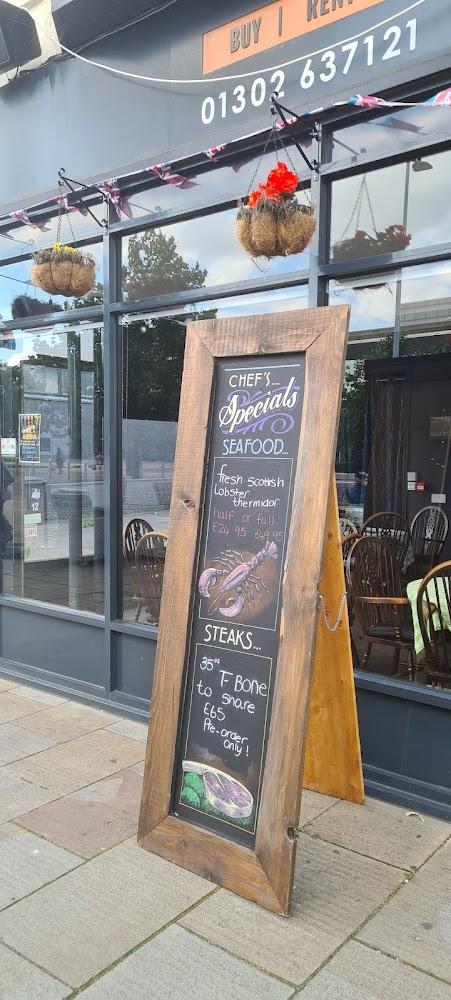 BUY | RENT
01302 637121
CHEF'S...
Specials
SEAFOOD...
fresh scottish
lobster
thermidor
half or full
£24.95 £49.95
STEAKS...
35oz T-BONE
to share
£65
Pre-order
only!
12